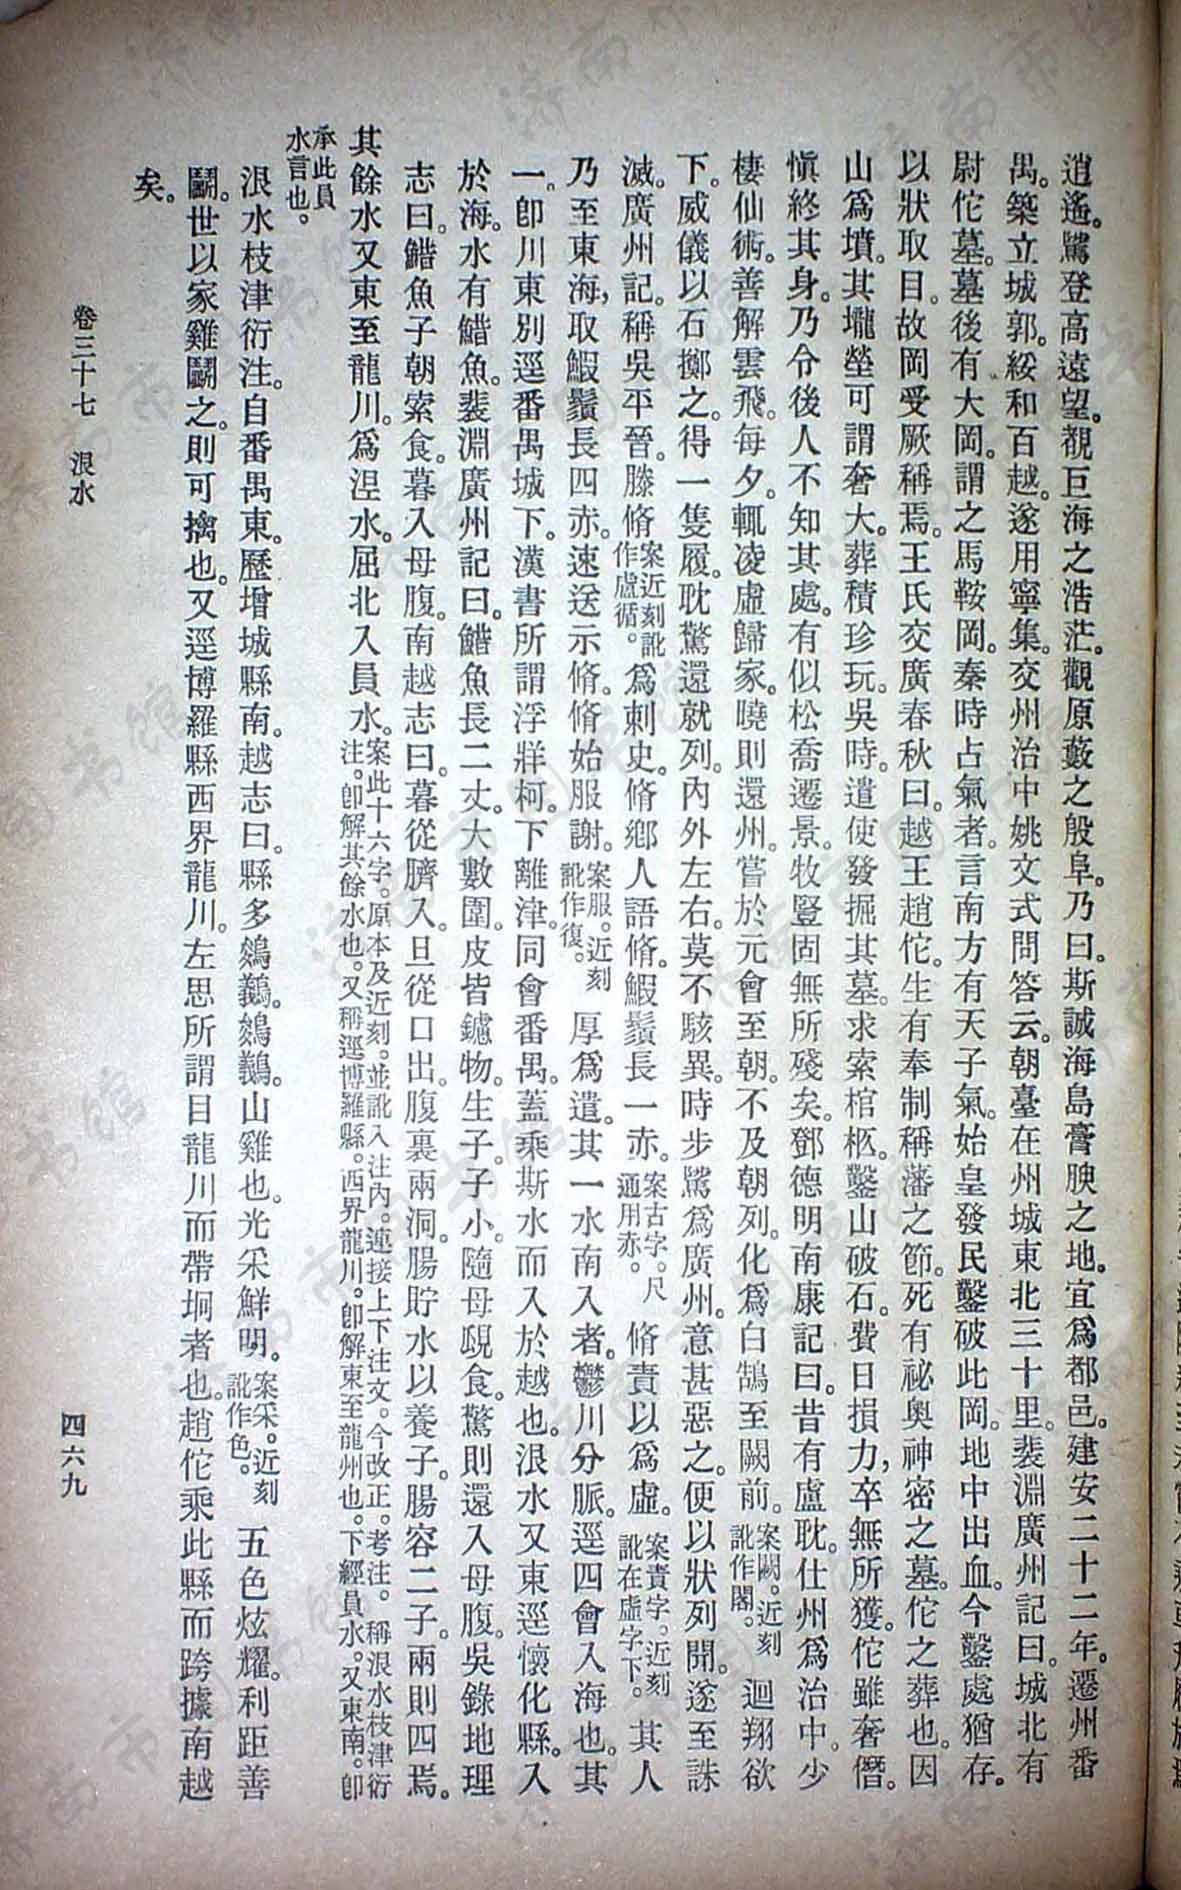 逍遙。驚登高遠望。覩巨海之浩茫。觀原藪之殷阜。乃曰。斯誠海島膏腴之地。宜爲都邑。建安二十二年。遷州番
禺。築立城郭。綏和百越。遂用寧集。交州治中姚文式問答云。朝臺在州城東北三十里。裴淵廣州記曰。城北有
尉佗墓。墓後有大岡。謂之馬鞍岡。秦時占氣者。言南方有天子氣。始皇發民鑿破此岡。地中出血。今鑿處猶存。
以狀取目。故岡受厥稱焉。王氏交廣春秋曰。越王趙佗。生有奉制稱藩之節。死有祕奧神密之墓。佗之葬也。因
山爲墳。其壠塋可謂奢大。葬積珍玩。吳時。遣使發掘其墓。求索棺柩。鑿山破石。費日損力，卒無所獲。佗雖奢僭。
愼終其身。乃令後人不知其處。有似松喬遷景。牧豎固無所殘矣。鄧德明南康記曰。昔有盧耽。仕州爲治中。少
棲仙術。善解雲飛。每夕。輒凌虛歸家。曉則還州。嘗於元會至朝。不及朝列。化爲白鵠至闕前。案闕。近刻訛作閣。迴翔欲
下。威儀以石擲之。得一隻履。耽驚還就列。內外左右。莫不駭異。時步騭爲廣州。意甚惡之。便以狀列聞。遂至誅
滅。廣州記。稱吳平晉。滕脩案近刻訛作盧循。爲刺史。脩鄉人語脩。鰕鬚長一赤。案古字。尺通用赤。脩責以爲虛。案責字。近刻訛在虛字下。其人
乃至東海，取鰕鬚長四赤。速送示脩。脩始服謝。案服。近刻訛作復。厚爲遣。其一水南入者。鬱川分脈。逕四會入海也。其
一。卽川東別逕番禺城下。漢書所謂浮牂柯。下離津。同會番禺。蓋乘斯水而入於越也。浪水又東逕懷化縣。入
於海。水有鯌魚。裴淵廣州記曰。鯌魚長二丈。大數圍。皮皆鑢物。生子。子小。隨母覗食。驚則還入母腹。吳錄地理
志曰。鯌魚子朝索食。暮入母腹。南越志曰。暮從臍入。旦從口出。腹裏兩洞。腸貯水以養子。腸容二子。兩則四焉。
其餘水又東至龍川。爲涅水。屈北入員水。案此十六字。原本及近刻。並訛入注內。連接上下注文。今改正。考注。稱浪水枝津衍注。卽解其餘水也。又稱逕博羅縣。西界龍川。卽解東至龍州也。下經員水。又東南。卽
承此員水言也。
浪水枝津衍注。自番禺東。歷增城縣南。越志曰。縣多鵕䴊。鵕䴊。山雞也。光采鮮明。案采。近刻訛作色。五色炫耀。利距善
鬭。世以家雞鬭之。則可擒也。又逕博羅縣西界龍川。左思所謂目龍川而帶坰者也。趙佗乘此縣而跨據南越
矣。
卷三十七 浪水
四六九